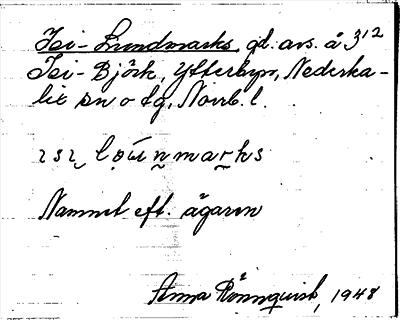 Isi-Lundmarks, gd. avs. å 3¹²
Isi-Björk, Ytterbyn, Nederka-
lix sn o tg, Norrb. l.
ɩsɩ lɷúnmarks
Namnet eft. ägaren
Anna Rönnquist, 1948